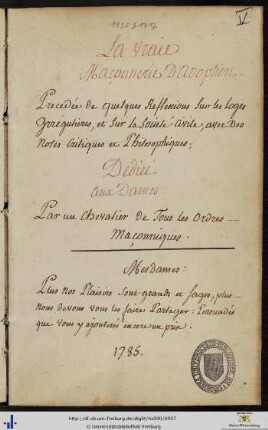 V
La Vraie
Maçonnerie D'adoption
Precedée de quelques Reflexions sur les Loges
Irrégulieres, et sur la Société Civile, avec Des
Notes Critiques et Philosophiques;
Dédiée
aux Dames
Par un Chevalier de Tous les Ordres
Maçonniques.
Mesdames:
Plus nos Plaisirs sont grands et sages, plus
nous devons vous les faire Partager: Persuadés
que vous y ajouterés encore un prix.
1785.
http://dl.ub.uni-freiburg.de/diglit/hs000/0007
© Universitätsbibliothek Freiburg